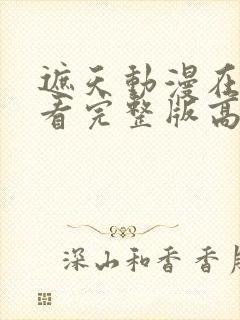 遮天動漫在
看完整版高
深山和香香